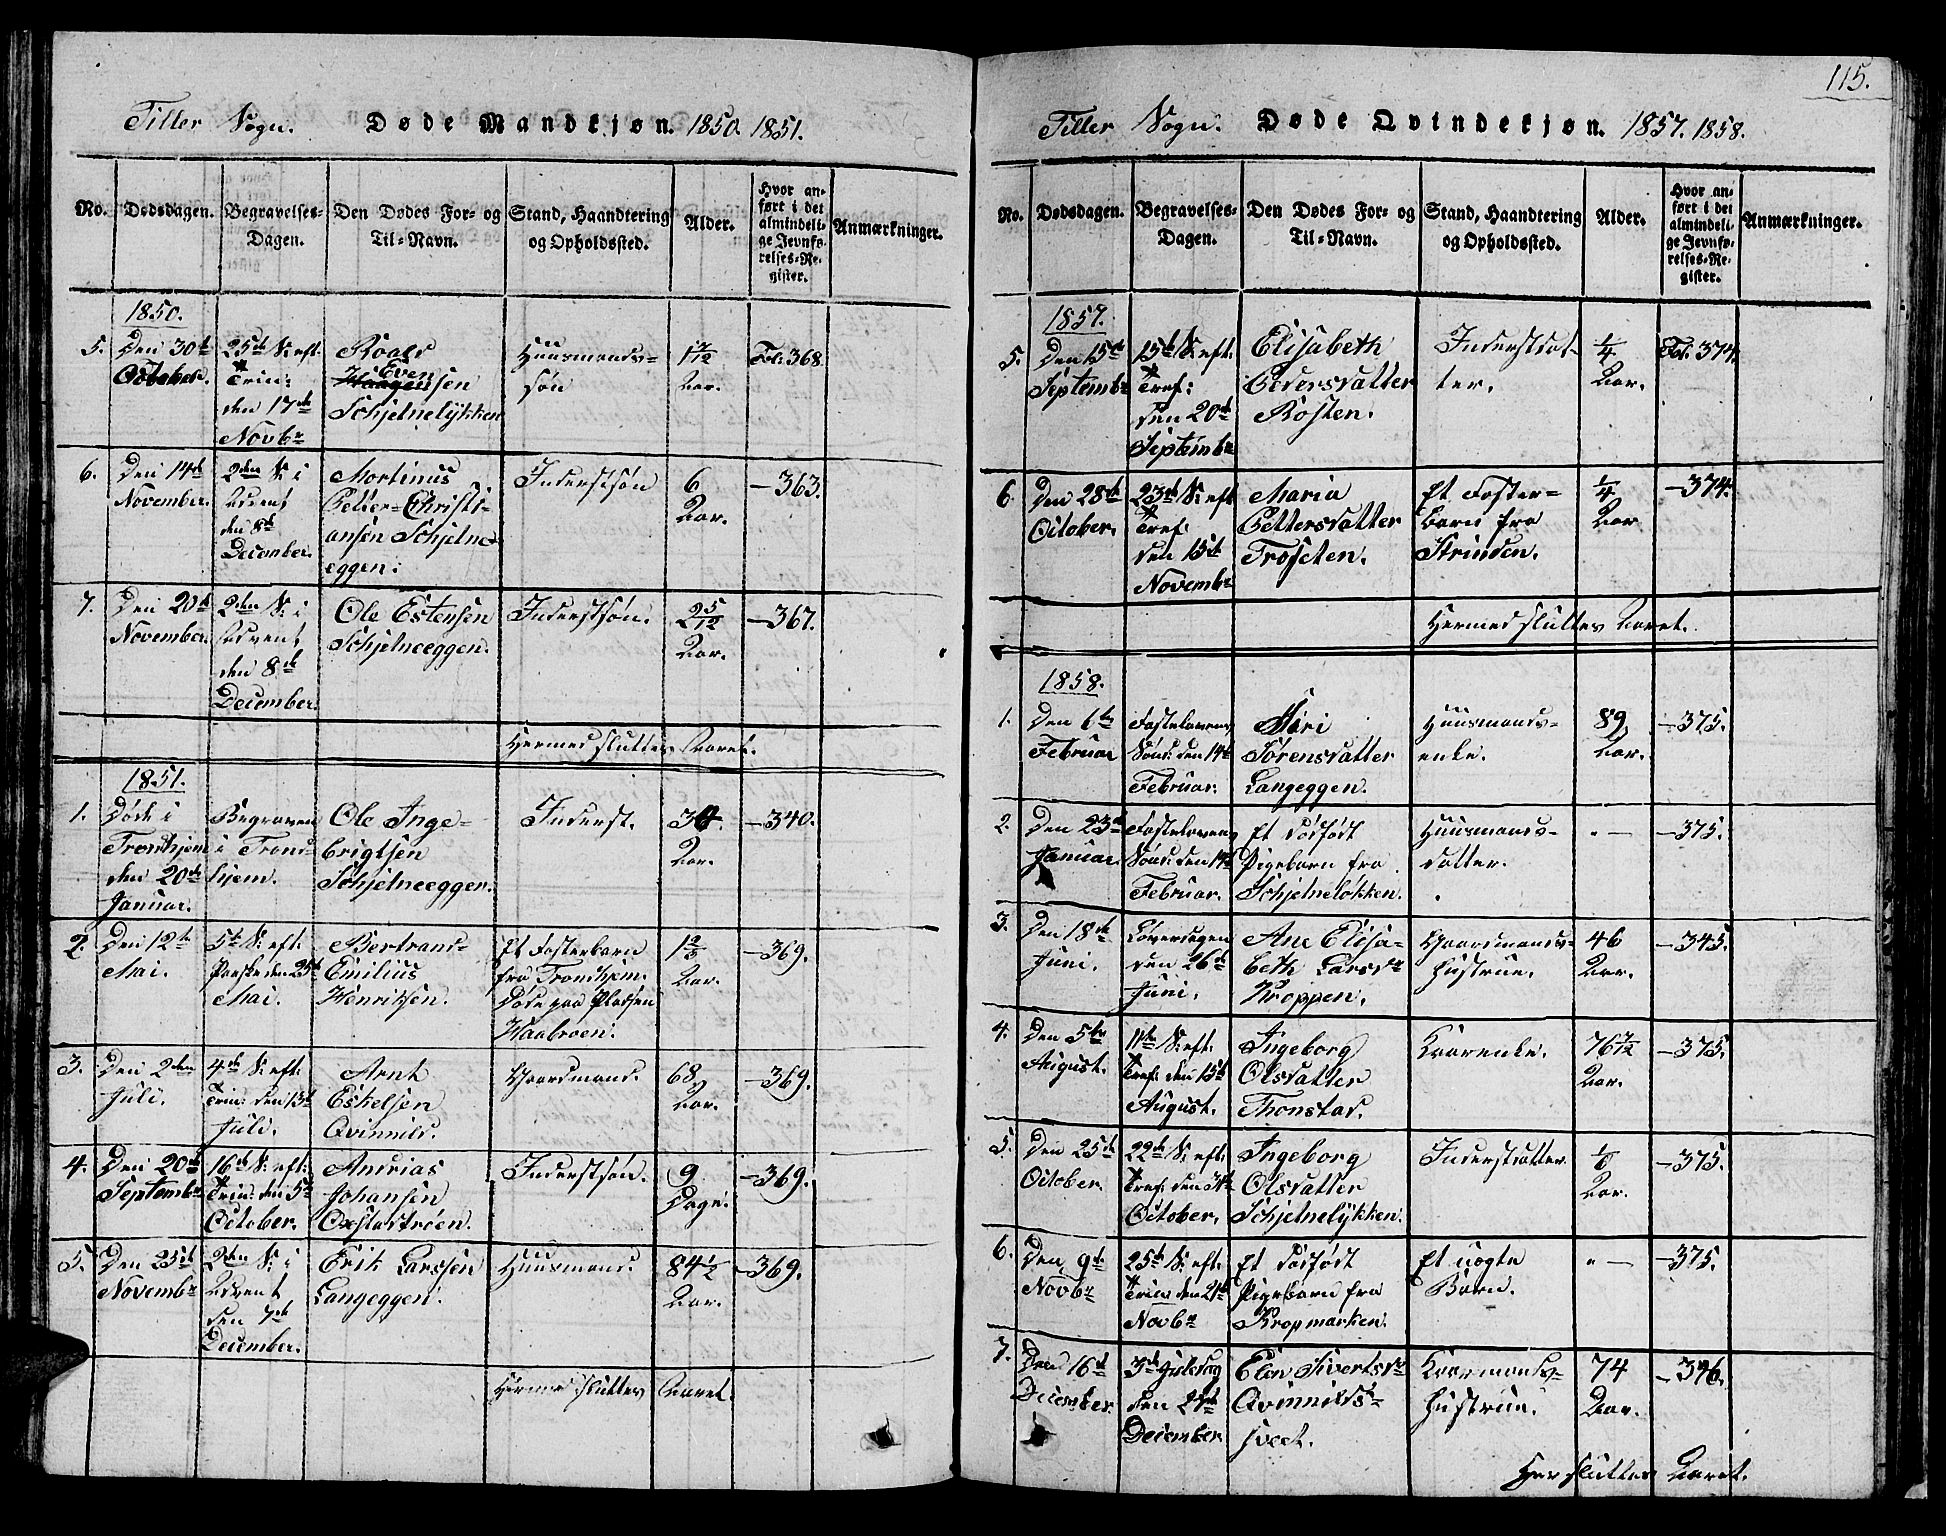 115.
Tiller Sogn. Døde Mandkjøn. 1850. 1851.
No. Dødsdagen. Begravelses-Dagen. Den Dødes For- og Til-Navn. Stand, Haandtering og Opholdssted. Alder. Hvor anført i det almindelige Jevnførelses-Register. Anmærkninger.
1850.
5. Den 30te October. 25de S: eft. Trin: den 17de Novbr Roald Even Haagensen Schjelnelykken Huusmands-søn 1 7/12 Aar. Fol: 368.
6. Den 14de November. 2den S: i Advent den 8de December. Mortinus Petter-Christiansen Schjelneeggen. Inderstsøn 6 Aar. —363.
7. Den 20de November. 2den S: i Advent den 8de December. Ole Estensen Schjelneeggen. Inderstsøn. 2 5/12 Aar. —367.
Hermed sluttes Aaret.
1851.
1. Døde i Trondhjem den 20de Januar. Begraven i Trondhjem. Ole Ingebrigtsen Schjelneeggen. Inderst. 30. Aar. —340.
2. Den 12te Mai. 5te S: eft. Paaske den 25de Mai. Bertrand-Emilius Henriksen. Et Fosterbarn fra Trondhjem. Døde paa Pladsen Haabroen. 1 2/3 Aar. —369.
3. Den 2den Juli. 4de S: eft. Trin: den 13de Juli. Arnt Eskelsen Qvinnild. Gaardmand. 68 Aar. —369.
4. Den 20de Septembr 16de S: eft: Trin: den 5te October. Andrias Johansen Oxstadtrøen. Inderstsøn. 9 Dage. —369.
5. Den 25de Novembr 2den S: i Advent den 7de December. Erik Larssen Langeggen. Huusmand. 84 1/2 Aar. —369.
Hermed sluttes Aaret.
Tiller Sogn. Døde Qvindekjøn. 1857. 1858.
No. Dødsdagen. Begravelses-Dagen. Den Dødes For- og Til-Navn. Stand, Haandtering og Opholdssted. Alder. Hvor anført i det almindelige Jevnførelses-Register. Anmærkninger.
1857.
5. Den 15de Septembr 15de S: eft. Tref: den 20de Septembr Elisabeth Pedersdatter Rosten. Inderstdatter. 1/4 Aar. Fol: 374.
6. Den 28de October. 23de S: eft Tref: den 15de Novembr Maria Pettersdatter Troseten. Et Fosterbarn fra Strinden. 1/4 Aar —374.
Hermed sluttes Aaret.
1858.
1. Den 6te Februar Fastelavens Sønd: den 14de Februar. Siri Sørensdatter Langeggen. Huusmands-enke. 89 Aar. —375.
2. Den 23de Januar. Fastelavens Sønd: den 14de Februar. Et dødfødt Pigebarn fra Schjelneløkken. Huusmands-datter. „ — —375.
3. Den 18de Juni. Løverdagen den 26de Juni. Ane Elisabeth Larsdr Kroppen. Gaardmands-hustrue. 46 Aar. —345.
4. Den 5te August. 11te S: eft. Tref: den 15de August. Ingeborg Olsdatter Thonstad. Kaarenke. 76 7/12 Aar. —375.
5. Den 25de October. 22de S: eft. Tref: den 31te October. Ingeborg Olsdatter Schjelnelykken. Inderstdatter. 1/6 Aar. —375.
6. Den 9de Novbr 25de S: eft. Trin: den 21de Novbr Et dødfødt Pigebarn fra Kropmarken. Et uægte Barn. „ — —375.
7. Den 16de December. 3de Juledag den 27de December Elen Sivertsdr Qvinnilds-sveet. Kaarmands-hustrue. 74 Aar. —346.
Her sluttes Aaret.